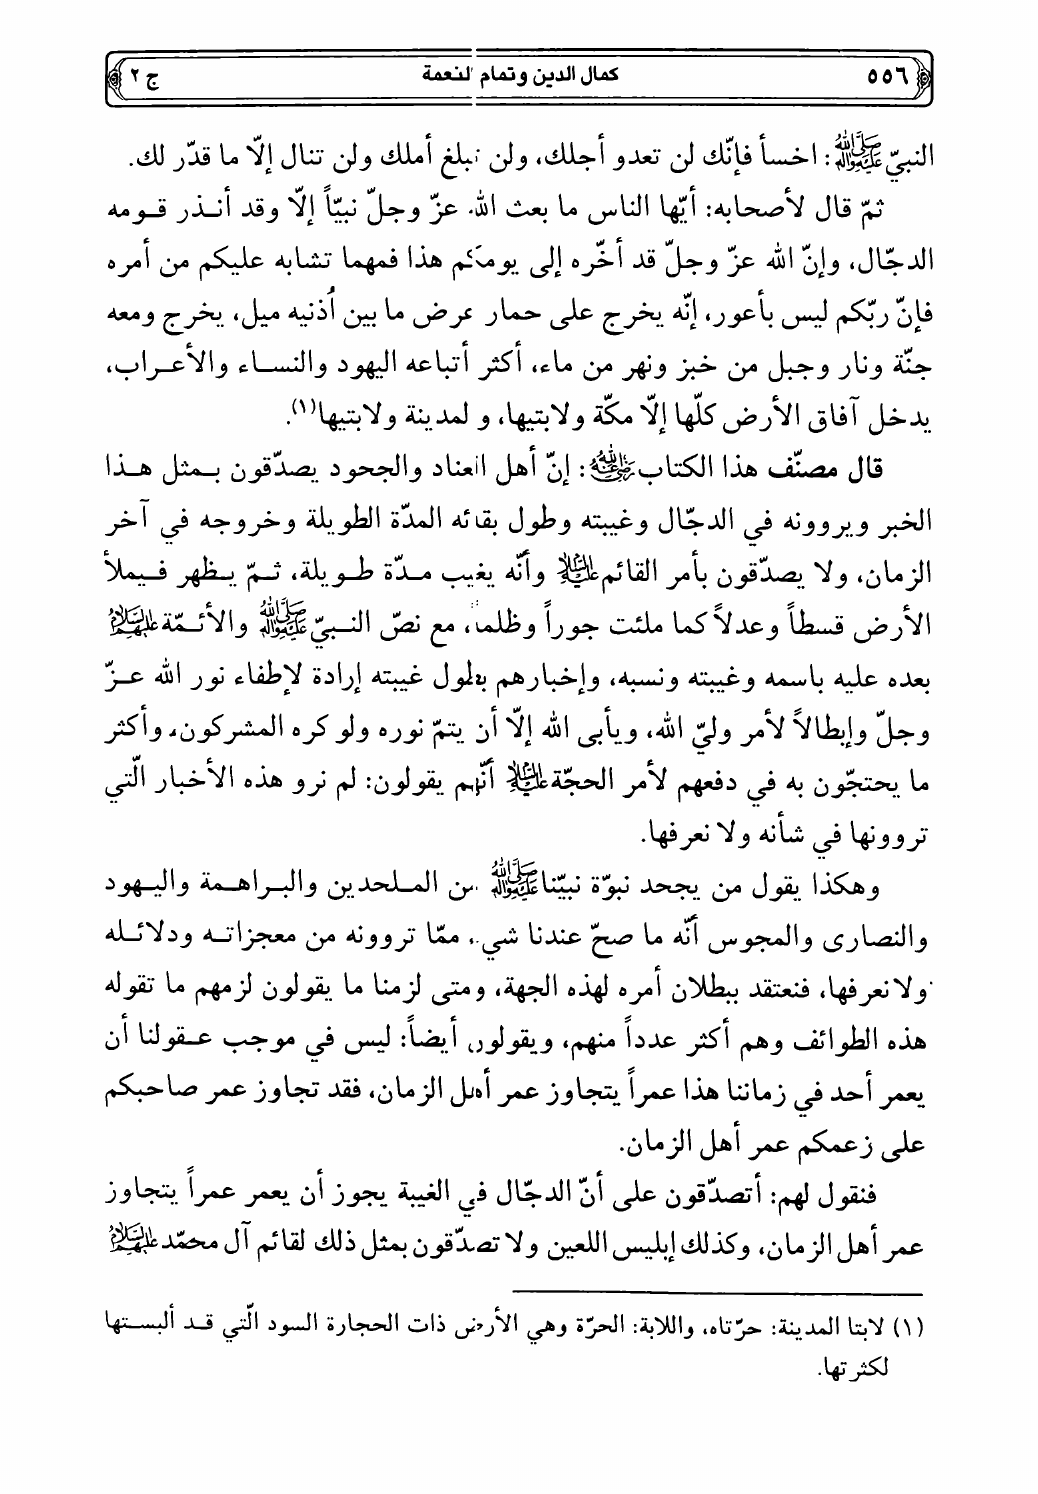 ٥٥٦ كمال الدين وتمام النعمة ج ٢
النبيّ ﷺ: اخسأ فإنّك لن تعدو أجلك، ولن تبلغ أملك ولن تنال إلّا ما قدّر لك.
ثمّ قال لأصحابه: أيّها الناس ما بعث الله عزّ وجلّ نبيّاً إلّا وقد أنذر قومه
الدجّال، وإنّ الله عزّ وجلّ قد أخّره إلى يومكم هذا فمهما تشابه عليكم من أمره
فإنّ ربّكم ليس بأعور، إنّه يخرج على حمار عرض ما بين أُذنيه ميل، يخرج ومعه
جنّة ونار وجبل من خبز ونهر من ماء، أكثر أتباعه اليهود والنساء والأعراب،
يدخل آفاق الأرض كلّها إلّا مكّة ولابتيها، والمدينة ولابتيها(١).
قال مصنّف هذا الكتاب رضي الله عنه: إنّ أهل العناد والجحود يصدّقون بمثل هذا
الخبر ويروونه في الدجّال وغيبته وطول بقائه المدّة الطويلة وخروجه في آخر
الزمان، ولا يصدّقون بأمر القائم عليه السلام وأنّه يغيب مدّة طويلة، ثمّ يظهر فيملأ
الأرض قسطاً وعدلاً كما ملئت جوراً وظلماً، مع نصّ النبيّ ﷺ والأئمّة عليهم السلام
بعده عليه باسمه وغيبته ونسبه، وإخبارهم بطول غيبته إرادة لإطفاء نور الله عزّ
وجلّ وإبطالاً لأمر وليّ الله، ويأبى الله إلّا أن يتمّ نوره ولو كره المشركون، وأكثر
ما يحتجّون به في دفعهم لأمر الحجّة عليه السلام أنّهم يقولون: لم نرو هذه الأخبار الّتي
تروونها في شأنه ولا نعرفها.
وهكذا يقول من يجحد نبوّة نبيّنا ﷺ من الملحدين والبراهمة واليهود
والنصارى والمجوس أنّه ما صحّ عندنا شيء ممّا تروونه من معجزاته ودلائله
ولا نعرفها، فنعتقد ببطلان أمره لهذه الجهة، ومتى لزمنا ما يقولون لزمهم ما تقوله
هذه الطوائف وهم أكثر عدداً منهم، ويقولون أيضاً: ليس في موجب عقولنا أن
يعمر أحد في زماننا هذا عمراً يتجاوز عمر أهل الزمان، فقد تجاوز عمر صاحبكم
على زعمكم عمر أهل الزمان.
فنقول لهم: أتصدّقون على أنّ الدجّال في الغيبة يجوز أن يعمر عمراً يتجاوز
عمر أهل الزمان، وكذلك إبليس اللعين ولا تصدّقون بمثل ذلك لقائم آل محمّد عليهم السلام
(١) لابتا المدينة: حرّتاه، واللابة: الحرّة وهي الأرض ذات الحجارة السود الّتي قد ألبستها
لكثرتها.